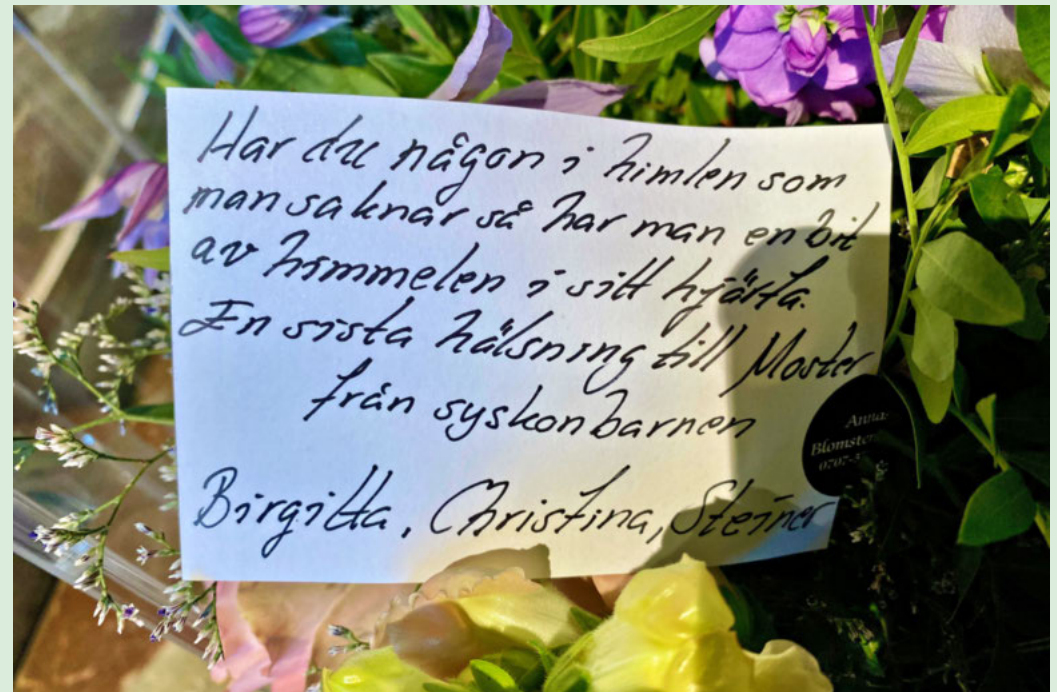 Har du någon i himlen som
man saknar så har man en bit
av himmelen i sitt hjärta.
En sista hälsning till Moster
från syskonbarnen
Birgitta, Christina, Steiner
Annas
0707-